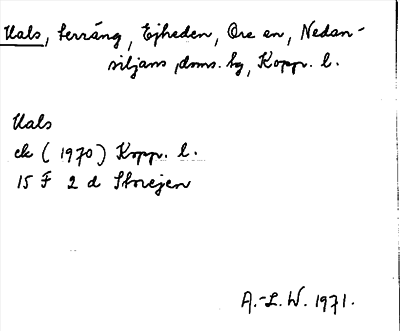 Uals, terräng, Ejheden, Ore sn, Nedan-
siljans doms. hg, Kopp. l.
Uals
ek (1970) Kopp. l.
15 F 2 d Storejen
A.-L. W. 1971.